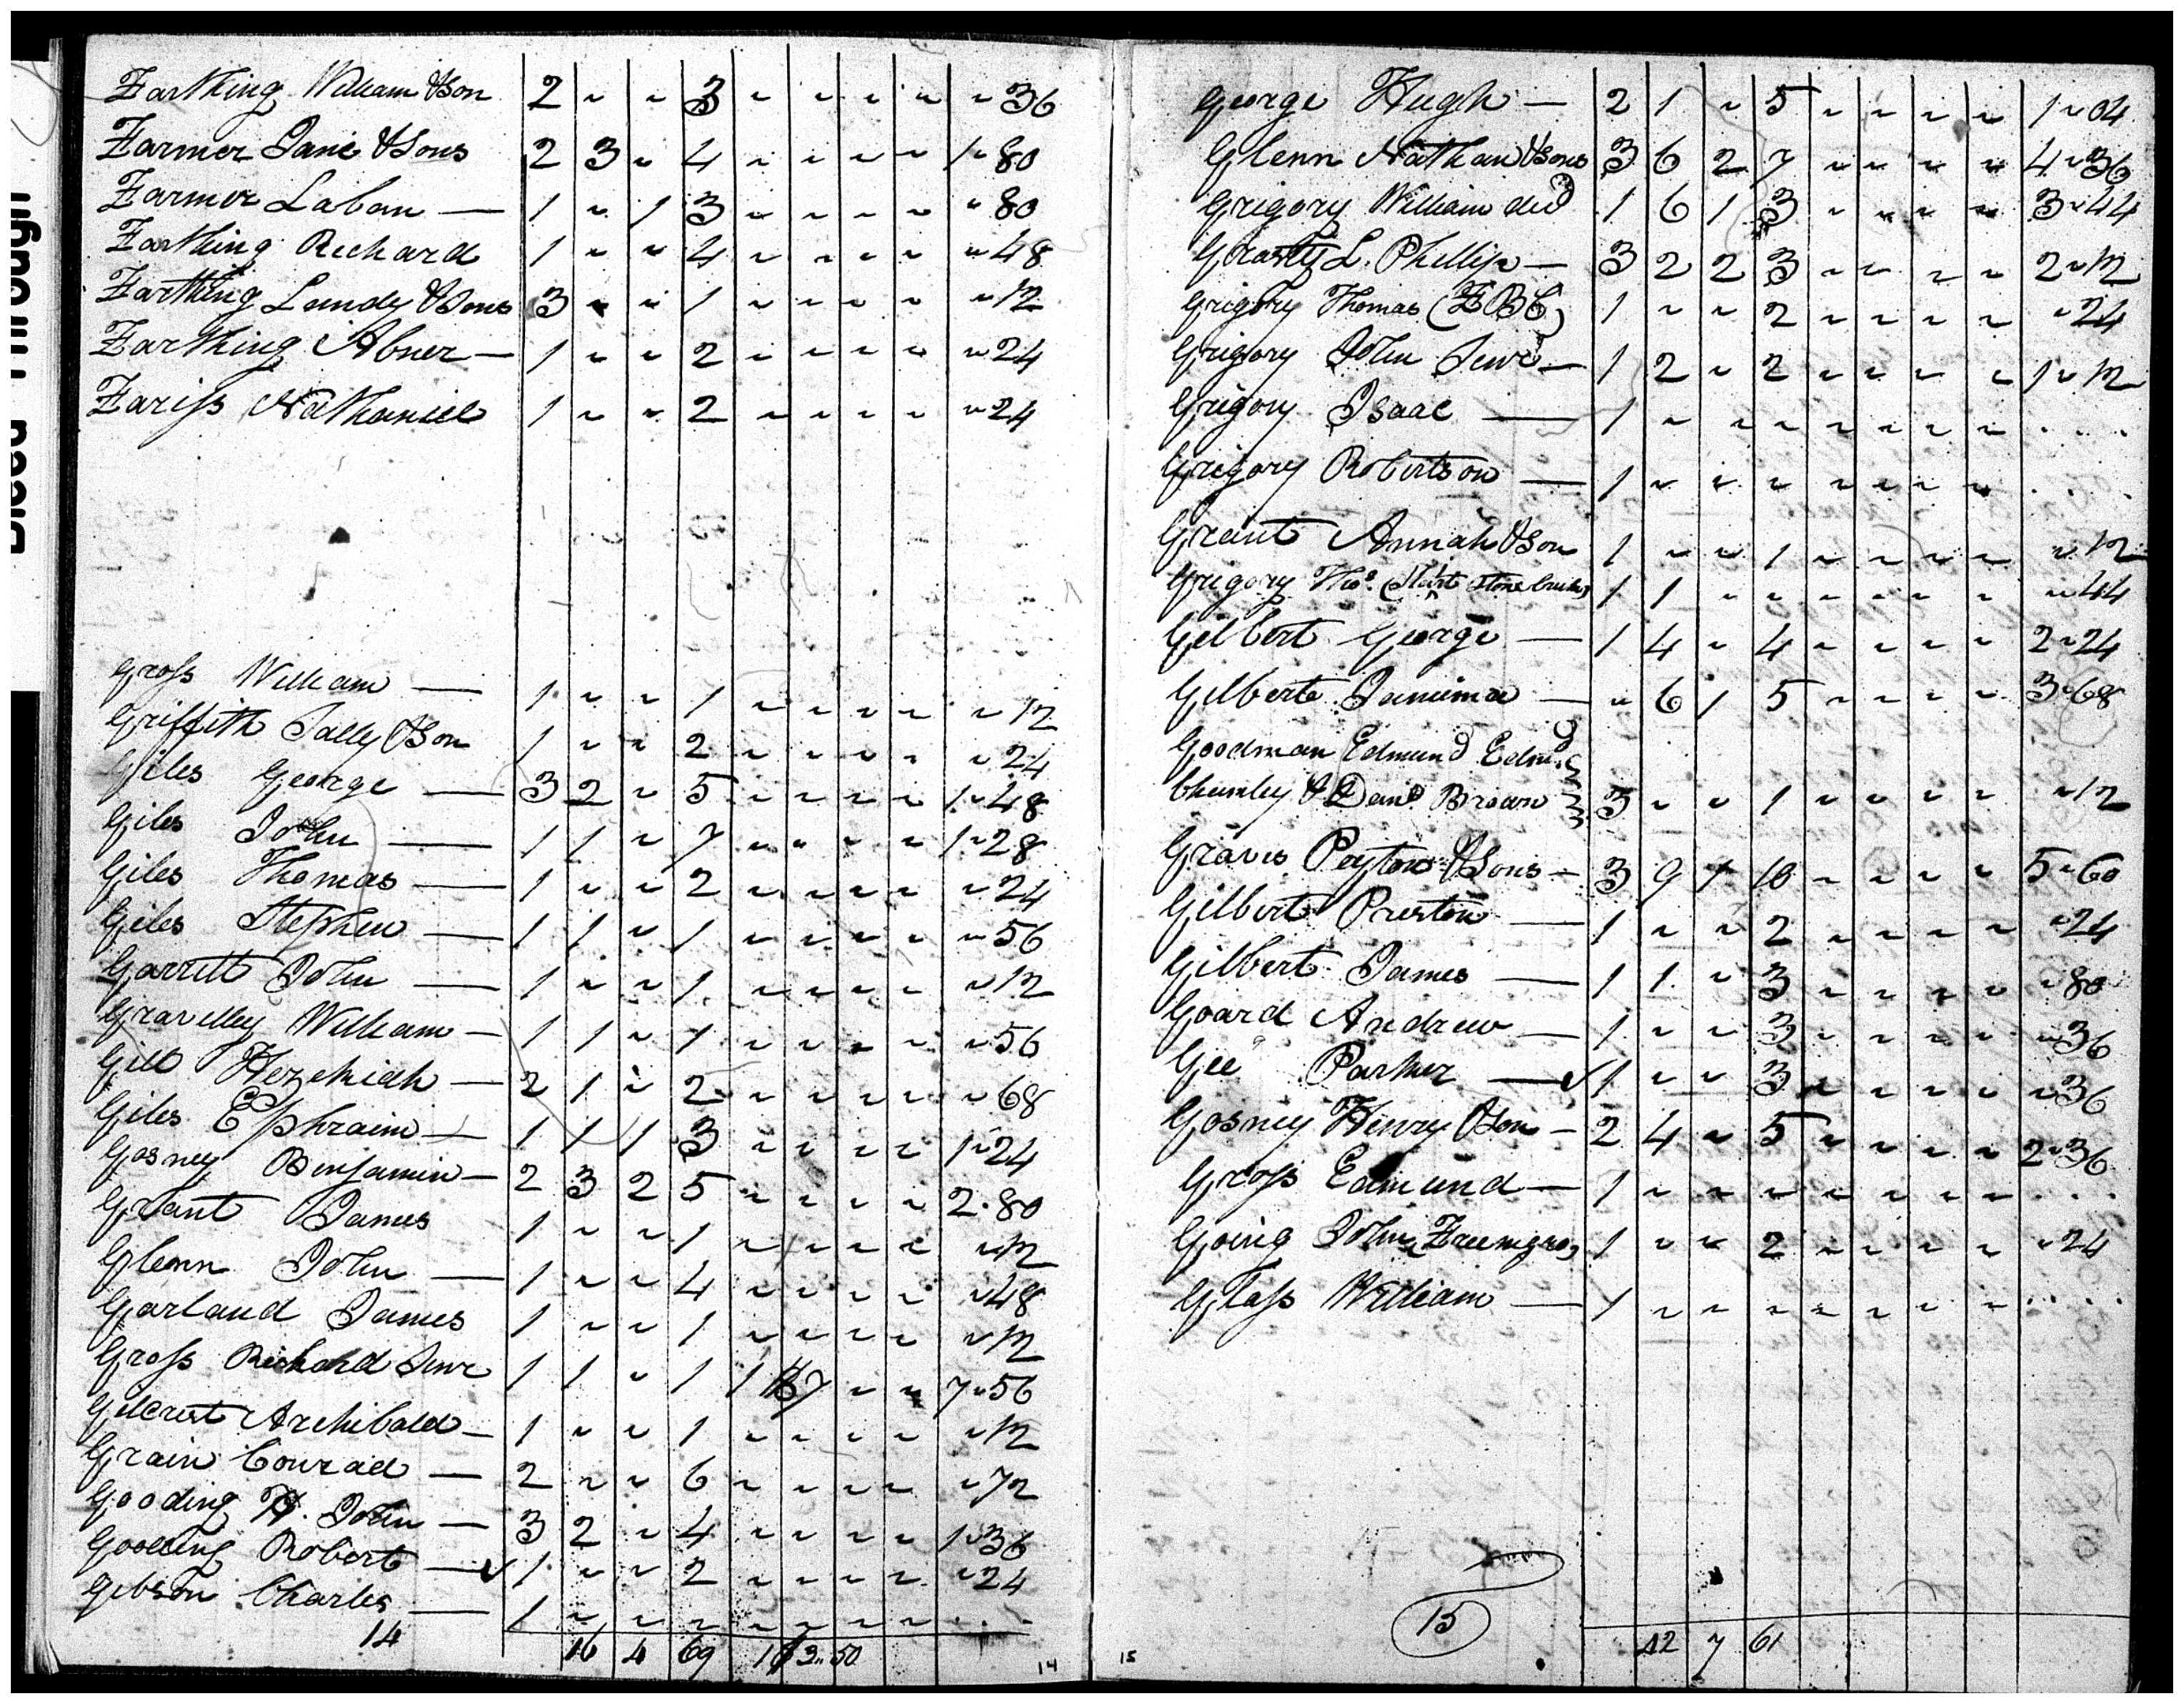 Farthing William & Son 2 " " 3 " " " " " 36
Farmer Jane & Sons 2 3 " 4 " " " " 1 " 80
Farmer Laban — 1 " 1 3 " " " " " 80
Farthing Richard 1 " " 4 " " " " " 48
Farthing Landy & Sons 3 " " 1 " " " " " 12
Farthing Abner — 1 " " 2 " " " " " 24
Fariss Nathaniel 1 " " 2 " " " " " 24
Gross William — 1 " " 1 " " " " " 12
Griffith Sally & Son 1 " " 2 " " " " " 24
Giles George — 3 2 " 5 " " " " 1 " 48
Giles John — 1 1 " 7 " " " " 1 " 28
Giles Thomas — 1 " " 2 " " " " " 24
Giles Stephen — 1 1 " 1 " " " " " 56
Garrett John — 1 " " 1 " " " " " 12
Gravelley William — 1 1 " 1 " " " " " 56
Gill Hezekiah — 2 1 " 2 " " " " " 68
Giles Ephraim — 1 1 1 3 " " " " 1 " 24
Gosney Benjamin — 2 3 2 5 " " " " 2 . 80
Grant James 1 " " 1 " " " " " 12
Glenn John — 1 " " 4 " " " " " 48
Garland James 1 " " 1 " " " " " 12
Gross Richard Senr 1 1 " 1 1 " " 7 " 56
Gilcrest Archibald — 1 " " 1 " " " " " 12
Grain Conrad — 2 " " 6 " " " " " 72
Gooding H. John — 3 2 " 4 " " " " 1 " 36
Gooding Robert — 1 " " 2 " " " " " 24
Gibson Charles — 1 " " " " " " " . . .
14
16 4 69
14
George Hugh — 2 1 " 5 " " " " 1 " 04
Glenn Nathan & Sons 3 6 2 7 " " " " 4 " 36
Grigory William decd 1 6 1 3 " " " " 3 " 44
Grasty L. Phillip — 3 2 2 3 " " " " 2 " 12
Grigory Thomas (FBC) 1 " " 2 " " " " " 24
Grigory John Senr — 1 2 " 2 " " " " 1 " 12
Grigory Isaac — 1 " " " " " " " . . .
Grigory Robertson — 1 " " " " " " " . . .
Grant Annah & Son 1 " " 1 " " " " " 12
Grigory Thos. 1 1 " " " " " " " 44
Gilbert George — 1 4 " 4 " " " " 2 " 24
Gilbert Jamima — " 6 1 5 " " " " 3 " 68
Goodman Edmund Edmd
Chumley & Danl Brown 3 " " 1 " " " " " 12
Graves Peyton & Sons — 3 9 1 10 " " " " 5 " 60
Gilbert Preston — 1 " " 2 " " " " " 24
Gilbert James — 1 1 " 3 " " " " " 80
Goard Andrew — 1 " " 3 " " " " " 36
Gee Parker — 1 " " 3 " " " " " 36
Gosney Henry & Son — 2 4 " 5 " " " " 2 " 36
Gross Edmund — 1 " " " " " " " . . .
Going John Freenegro 1 " " 2 " " " " " 24
Glass William — 1 " " " " " " " . . .
15
42 7 61
15